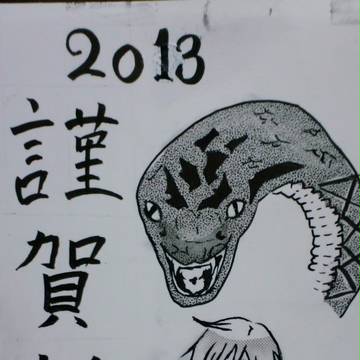 2013
謹賀